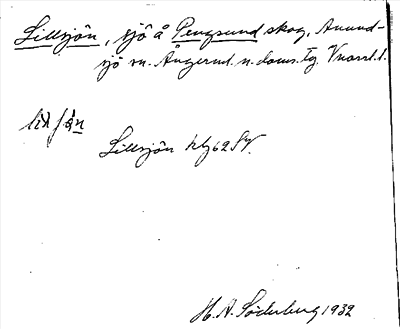 Lillsjön, sjö å Pengsund skog, Anund-
sjö sn. Ångermd. n. doms. Tg. Vnorrl. l.
Lillsjön Kbg 62 SV.
H. A. Söderberg 1932